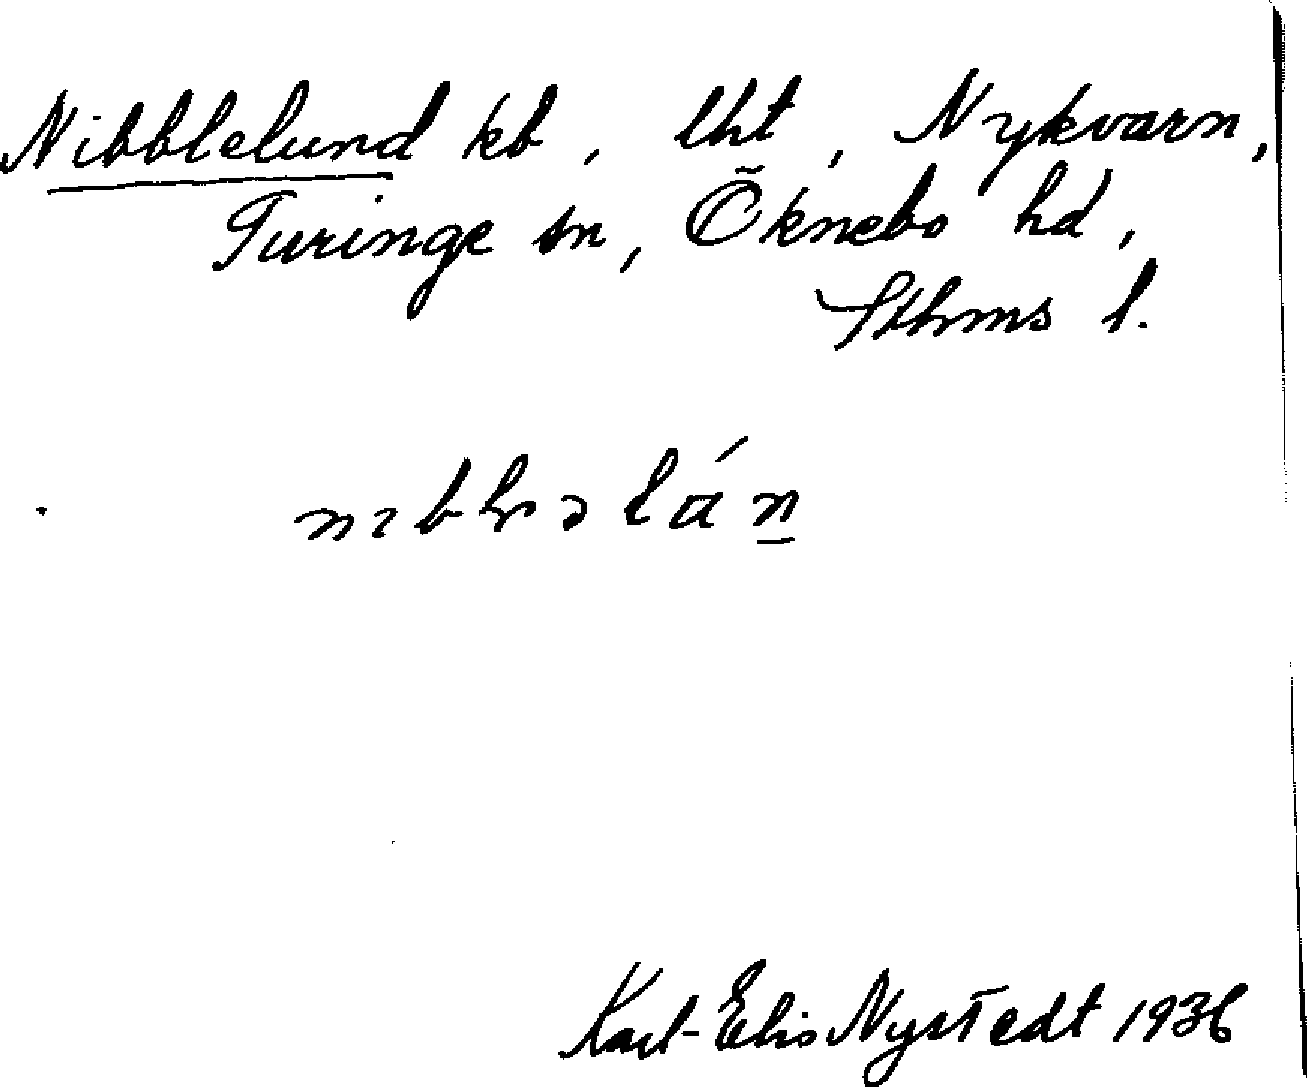 Nibblelund kb, lht, Nykvarn,
Turinge sn, Öknebo hd,
Sthms l.
Karl-Elis Nystedt 1936